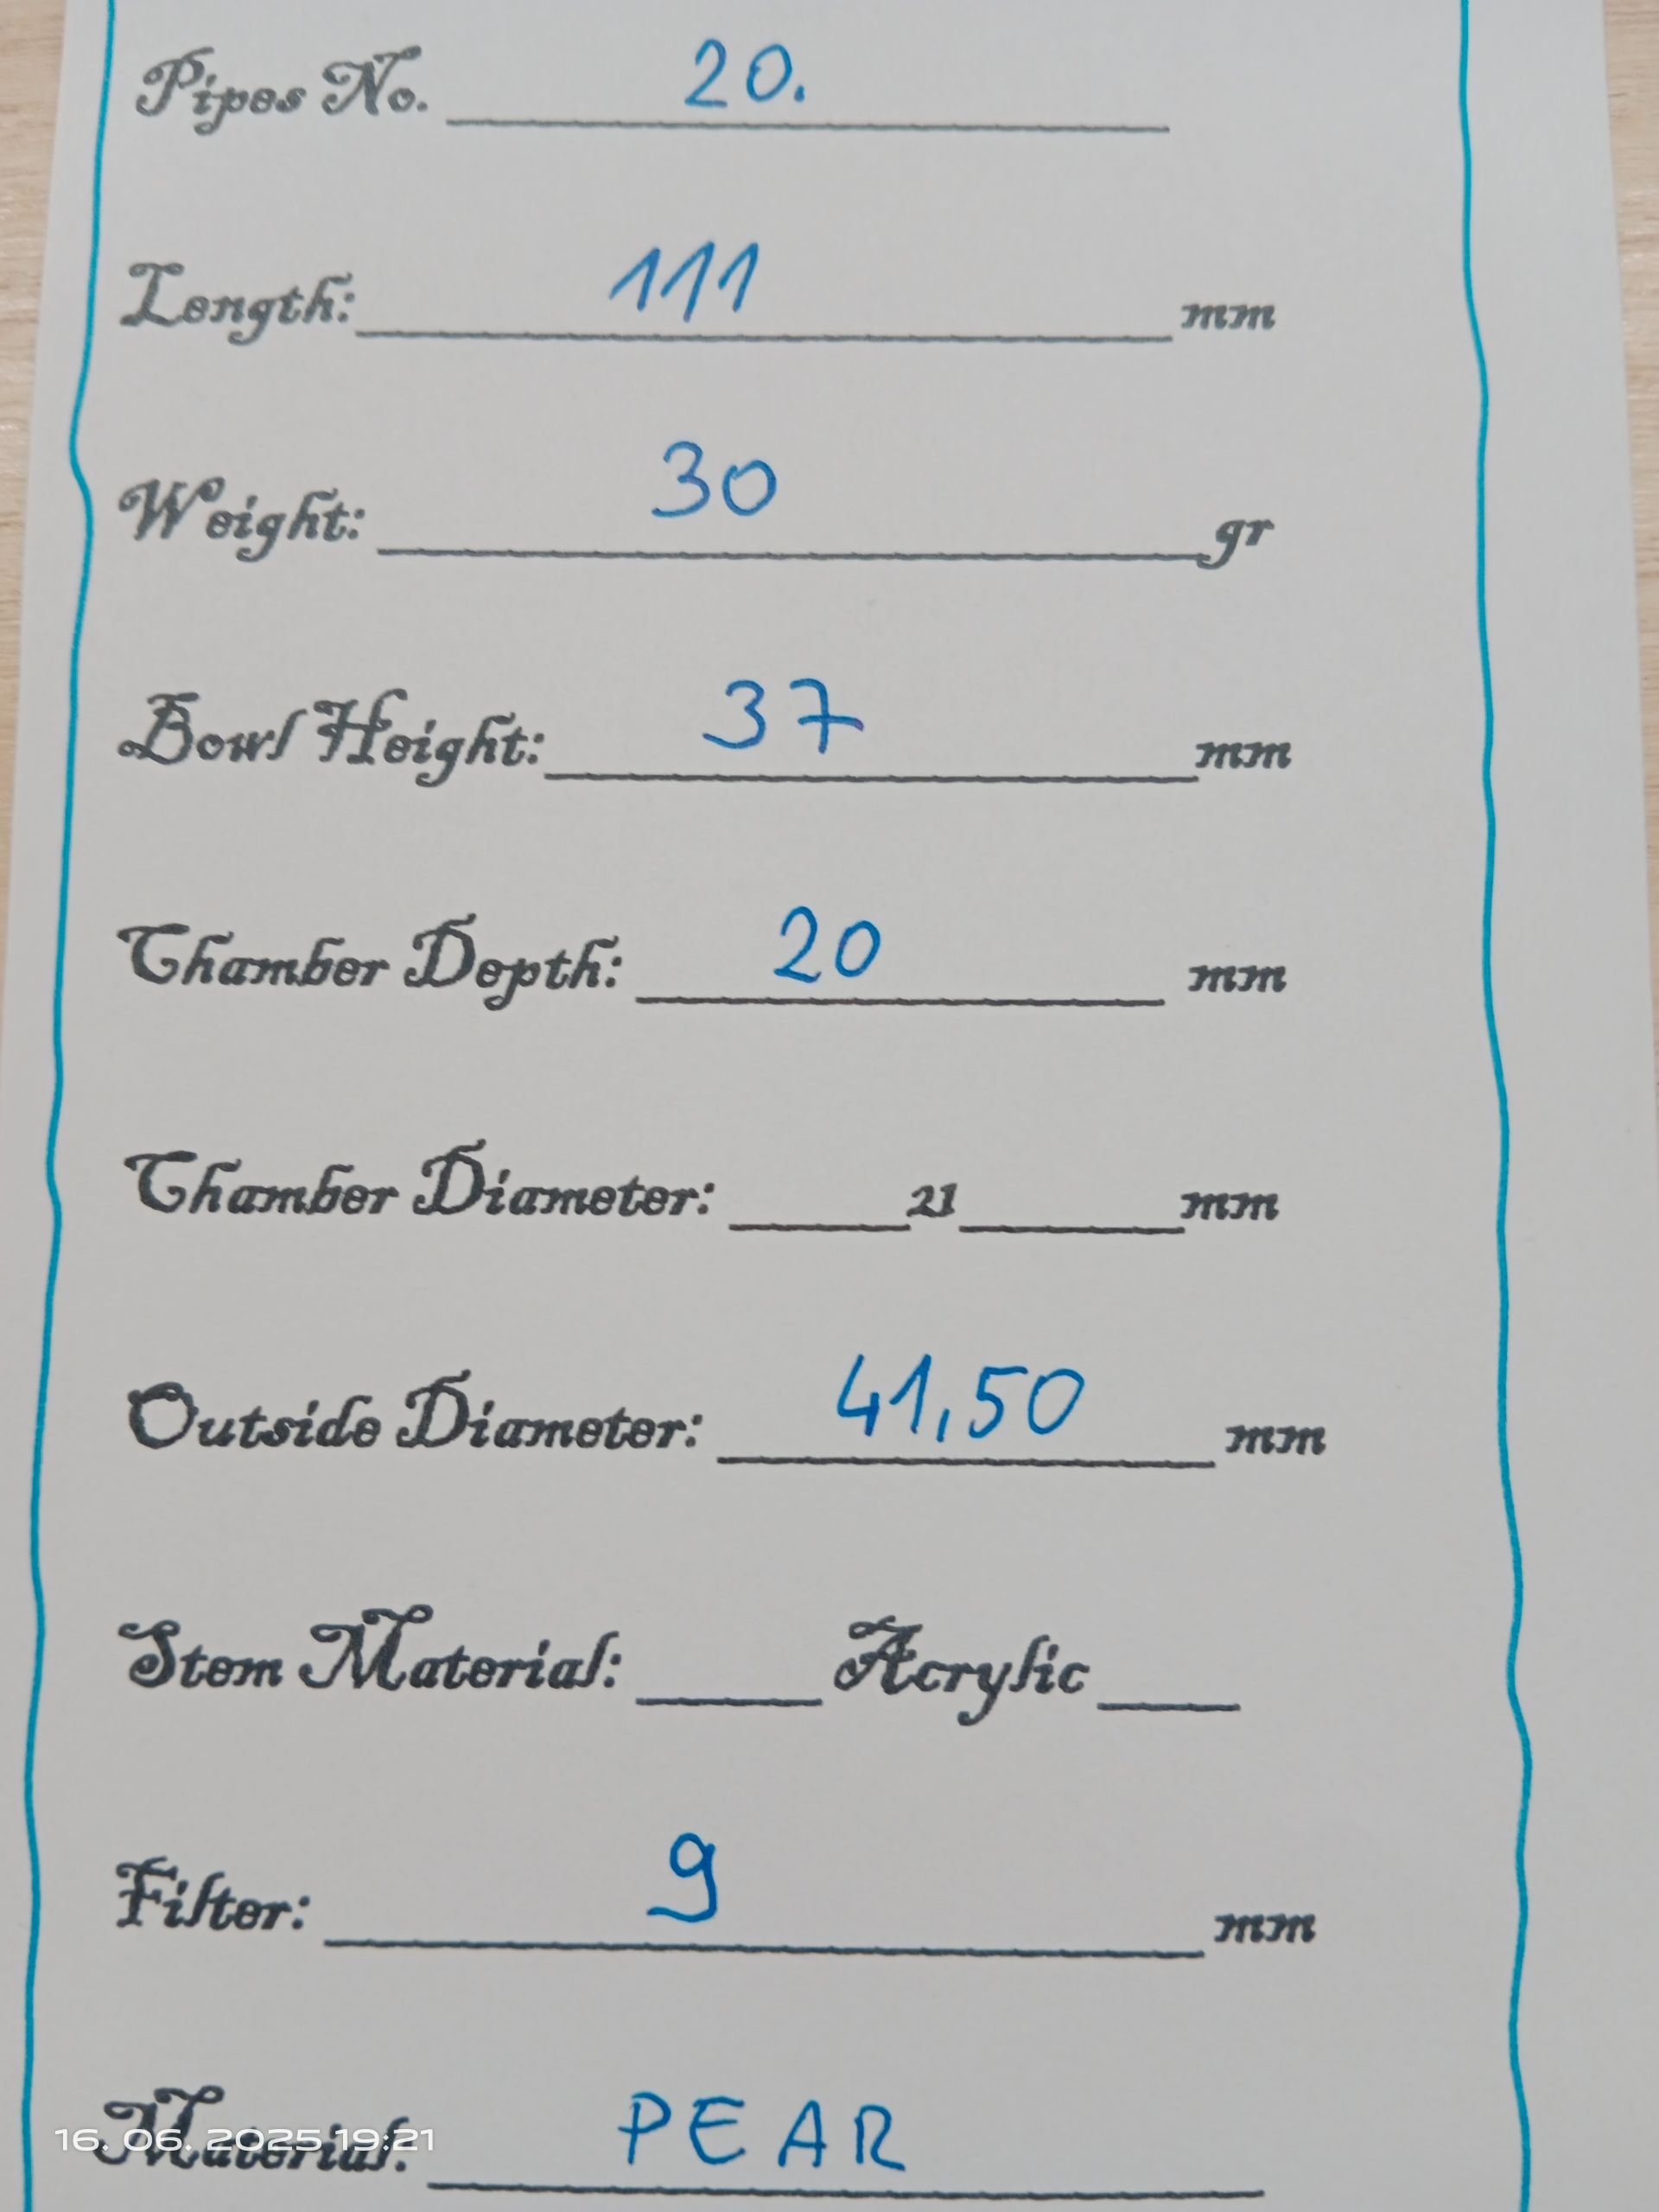 Pipes No. 20.
Length: 111 mm
Weight: 30 gr
Bowl Height: 37 mm
Chamber Depth: 20 mm
Chamber Diameter: 21 mm
Outside Diameter: 41,50 mm
Stem Material: Acrylic
Filter: 9 mm
Material: PEAR
16. 06. 2025 19:21